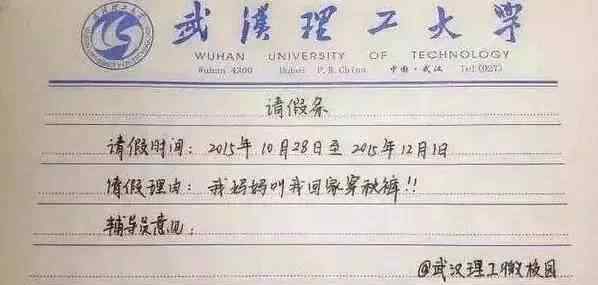 武汉理工大学
WUHAN UNIVERSITY OF TECHNOLOGY
Wuhan 4300 Hubei P.R.China 中国·武汉 Tel:(027)
请假条
请假时间: 2015年10月28日至2015年12月1日
请假理由: 我妈妈叫我回家穿秋裤!!
辅导员意见:
@武汉理工微校园